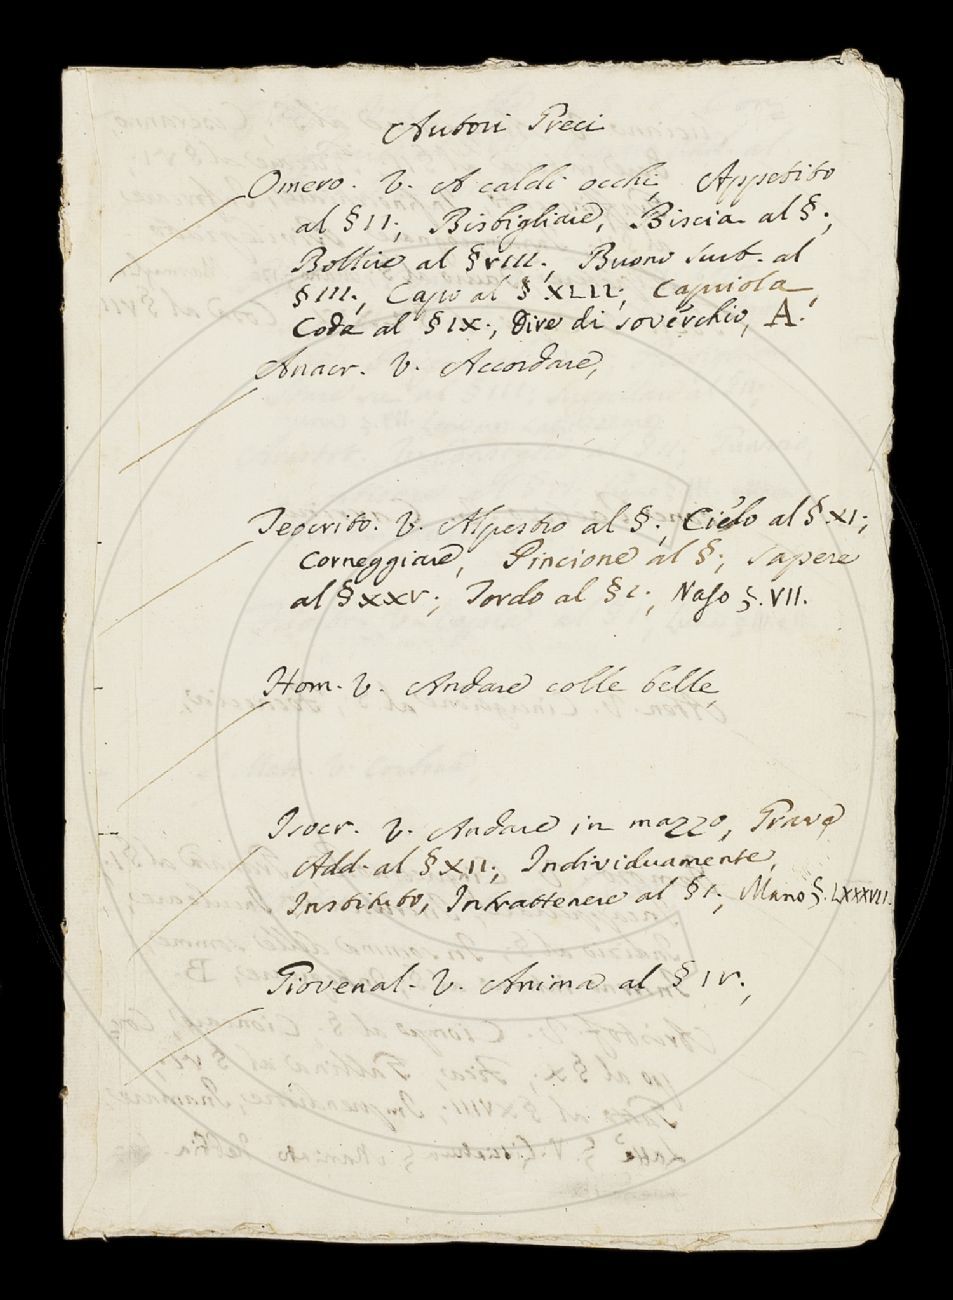 Autori Greci
Omero. V. A caldi occhi, Appetito
al § II; Bisbigliare, Biscia al §;
Bollire al § VIII; Buono Sust. al
§ III; Capo al § XLII; Capriola,
Coda al § IX., Dire di soverchio, A.
Anacr. V. Accordare,
Teocrito. V. Alpestro al §; Cielo al § XI;
Corneggiare, Pincione al §; Sapere
al § XXV; Tordo al § I; Naso §. VII.
Hom. V. Andare colle belle
Isocr. V. Andare in mazzo, Grave
Add. al § XII; Individuamente,
Instituto, Intrattenere al § I; Mano §. LXXXVII.
Giovenal. V. Anima al § IV;